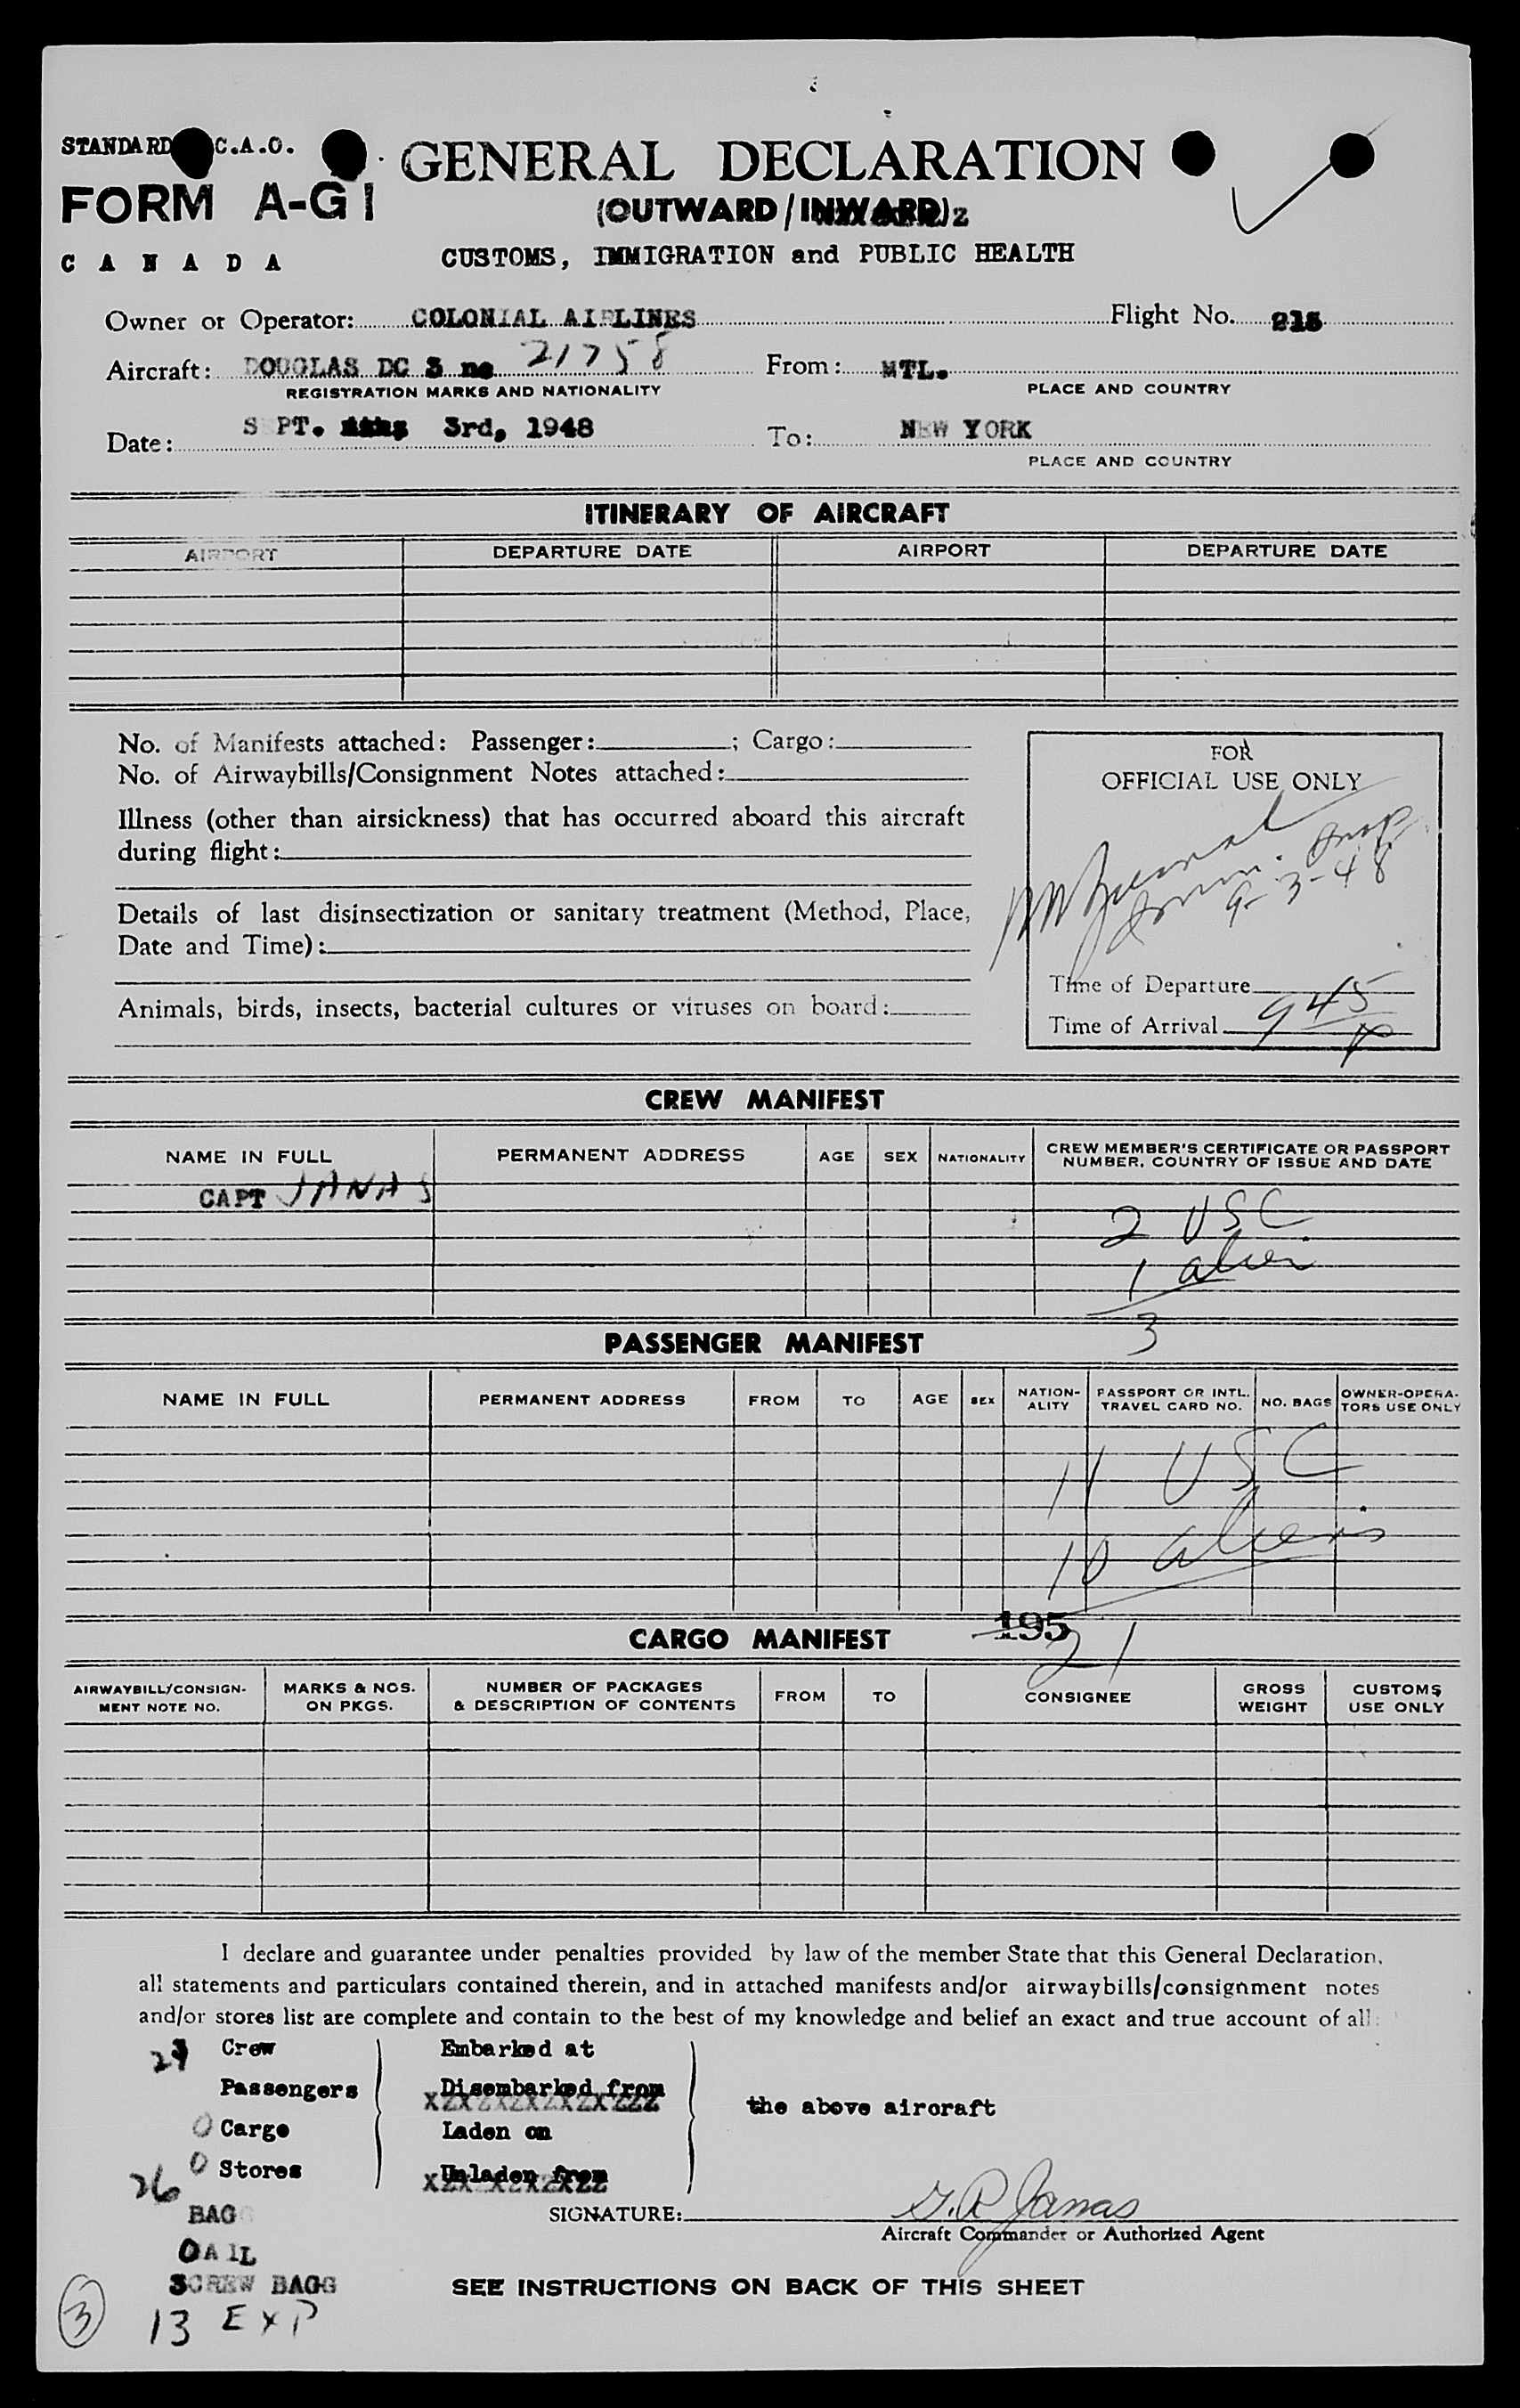 STANDARD C.A.O.
GENERAL DECLARATION
FORM A-G1
(OUTWARD/INWARD)
CANADA
CUSTOMS, IMMIGRATION and PUBLIC HEALTH
Owner or Operator: COLONIAL AIRLINES Flight No.
Aircraft: DOUGLAS DC 3 nc 21758 From: MTL.
REGISTRATION MARKS AND NATIONALITY PLACE AND COUNTRY
Date: SEPT. 3rd, 1948 To: NEW YORK
PLACE AND COUNTRY
ITINERARY OF AIRCRAFT
AIRPORT DEPARTURE DATE AIRPORT DEPARTURE DATE
No. of Manifests attached: Passenger: ; Cargo:
No. of Airwaybills/Consignment Notes attached:
Illness (other than airsickness) that has occurred aboard this aircraft
during flight:
Details of last disinsectization or sanitary treatment (Method, Place,
Date and Time):
Animals, birds, insects, bacterial cultures or viruses on board:
FOR
OFFICIAL USE ONLY
Imm. Insp
9-3-48
Time of Departure
Time of Arrival 945 p
CREW MANIFEST
NAME IN FULL PERMANENT ADDRESS AGE SEX NATIONALITY CREW MEMBER'S CERTIFICATE OR PASSPORT
NUMBER, COUNTRY OF ISSUE AND DATE
CAPT JANAS
2 USC
1 alien
3
PASSENGER MANIFEST
NAME IN FULL PERMANENT ADDRESS FROM TO AGE SEX NATION-
ALITY PASSPORT OR INTL.
TRAVEL CARD NO. NO. BAGS OWNER-OPERA-
TORS USE ONLY
11 USC
10 aliens
195
21
CARGO MANIFEST
AIRWAYBILL/CONSIGN-
MENT NOTE NO. MARKS & NOS.
ON PKGS. NUMBER OF PACKAGES
& DESCRIPTION OF CONTENTS FROM TO CONSIGNEE GROSS
WEIGHT CUSTOMS
USE ONLY
I declare and guarantee under penalties provided by law of the member State that this General Declaration,
all statements and particulars contained therein, and in attached manifests and/or airwaybills/consignment notes
and/or stores list are complete and contain to the best of my knowledge and belief an exact and true account of all:
Crew Embarked at
Passengers Disembarked from
the above aircraft
0 Cargo Laden on
0 Stores Unladen from
26
BAGG
SIGNATURE: G.R. Janas
Aircraft Commander or Authorized Agent
0AIL
3CREW BAGG
SEE INSTRUCTIONS ON BACK OF THIS SHEET
3
13 EXP